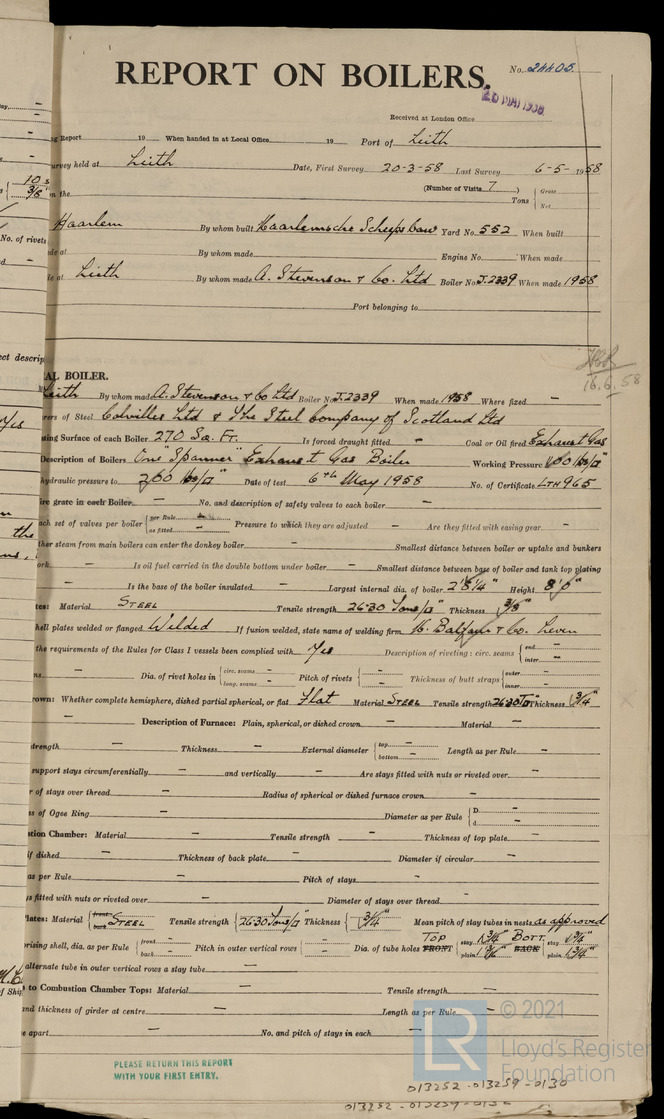 REPORT ON BOILERS.
No. 24405
Received at London Office
Report 19 When handed in at Local Office 19 Port of Leith
Survey held at Leith Date, First Survey 20-3-58 Last Survey 6-5-1958
on the (Number of Visits 7) Gross
Tons Net
Haarlem By whom built Haarlemsche Scheepsbouw Yard No. 552 When built
By whom made Engine No. When made
Leith By whom made A. Stevenson & Co. Ltd Boiler No. J.2339 When made 1958
Port belonging to
16.6.58
AL BOILER.
Leith By whom made A. Stevenson & Co Ltd Boiler No. J.2339 When made 1958 Where fixed —
rers of Steel Colvilles Ltd & The Steel Company of Scotland Ltd
ting Surface of each Boiler 270 Sq. Ft. Is forced draught fitted — Coal or Oil fired Exhaust Gas
Description of Boilers One "Spanner" Exhaust Gas Boiler Working Pressure 100 lbs/□"
hydraulic pressure to 200 lbs/□" Date of test 6th May 1958 No. of Certificate LTH 965
ire grate in each Boiler — No. and description of safety valves to each boiler —
ach set of valves per boiler per Rule — as fitted — Pressure to which they are adjusted — Are they fitted with easing gear —
ther steam from main boilers can enter the donkey boiler — Smallest distance between boiler or uptake and bunkers
ork — Is oil fuel carried in the double bottom under boiler — Smallest distance between base of boiler and tank top plating
— Is the base of the boiler insulated — Largest internal dia. of boiler 2'8¼" Height 8'0"
tes: Material STEEL Tensile strength 26-30 Tons/□" Thickness 3/8"
hell plates welded or flanged Welded If fusion welded, state name of welding firm H. Balfour & Co. Leven
the requirements of the Rules for Class I vessels been complied with Yes Description of riveting: circ. seams end — inter —
ms — Dia. of rivet holes in circ. seams — long. seams — Pitch of rivets — Thickness of butt straps outer — inner —
rown: Whether complete hemisphere, dished partial spherical, or flat Flat Material STEEL Tensile strength 26-30 T/□" Thickness 3/4"
— Description of Furnace: Plain, spherical, or dished crown — Material —
strength — Thickness — External diameter top — bottom — Length as per Rule —
support stays circumferentially — and vertically — Are stays fitted with nuts or riveted over —
r of stays over thread — Radius of spherical or dished furnace crown —
ss of Ogee Ring — Diameter as per Rule D — d —
stion Chamber: Material — Tensile strength — Thickness of top plate —
if dished — Thickness of back plate — Diameter if circular —
as per Rule — Pitch of stays —
s fitted with nuts or riveted over — Diameter of stays over thread —
lates: Material front back STEEL Tensile strength 26-30 Tons/□" Thickness 3/4" Mean pitch of stay tubes in nests as approved
rising shell, dia. as per Rule front — back — Pitch in outer vertical rows — Dia. of tube holes TOP FRONT stay 1¾" plain BOTT. BACK stay 1¾" plain 1¾"
alternate tube in outer vertical rows a stay tube —
to Combustion Chamber Tops: Material — Tensile strength —
and thickness of girder at centre — Length as per Rule —
e apart — No. and pitch of stays in each —
PLEASE RETURN THIS REPORT
WITH YOUR FIRST ENTRY.
LR
© 2021
Lloyd's Register
Foundation
013252 - 013259 - 0130